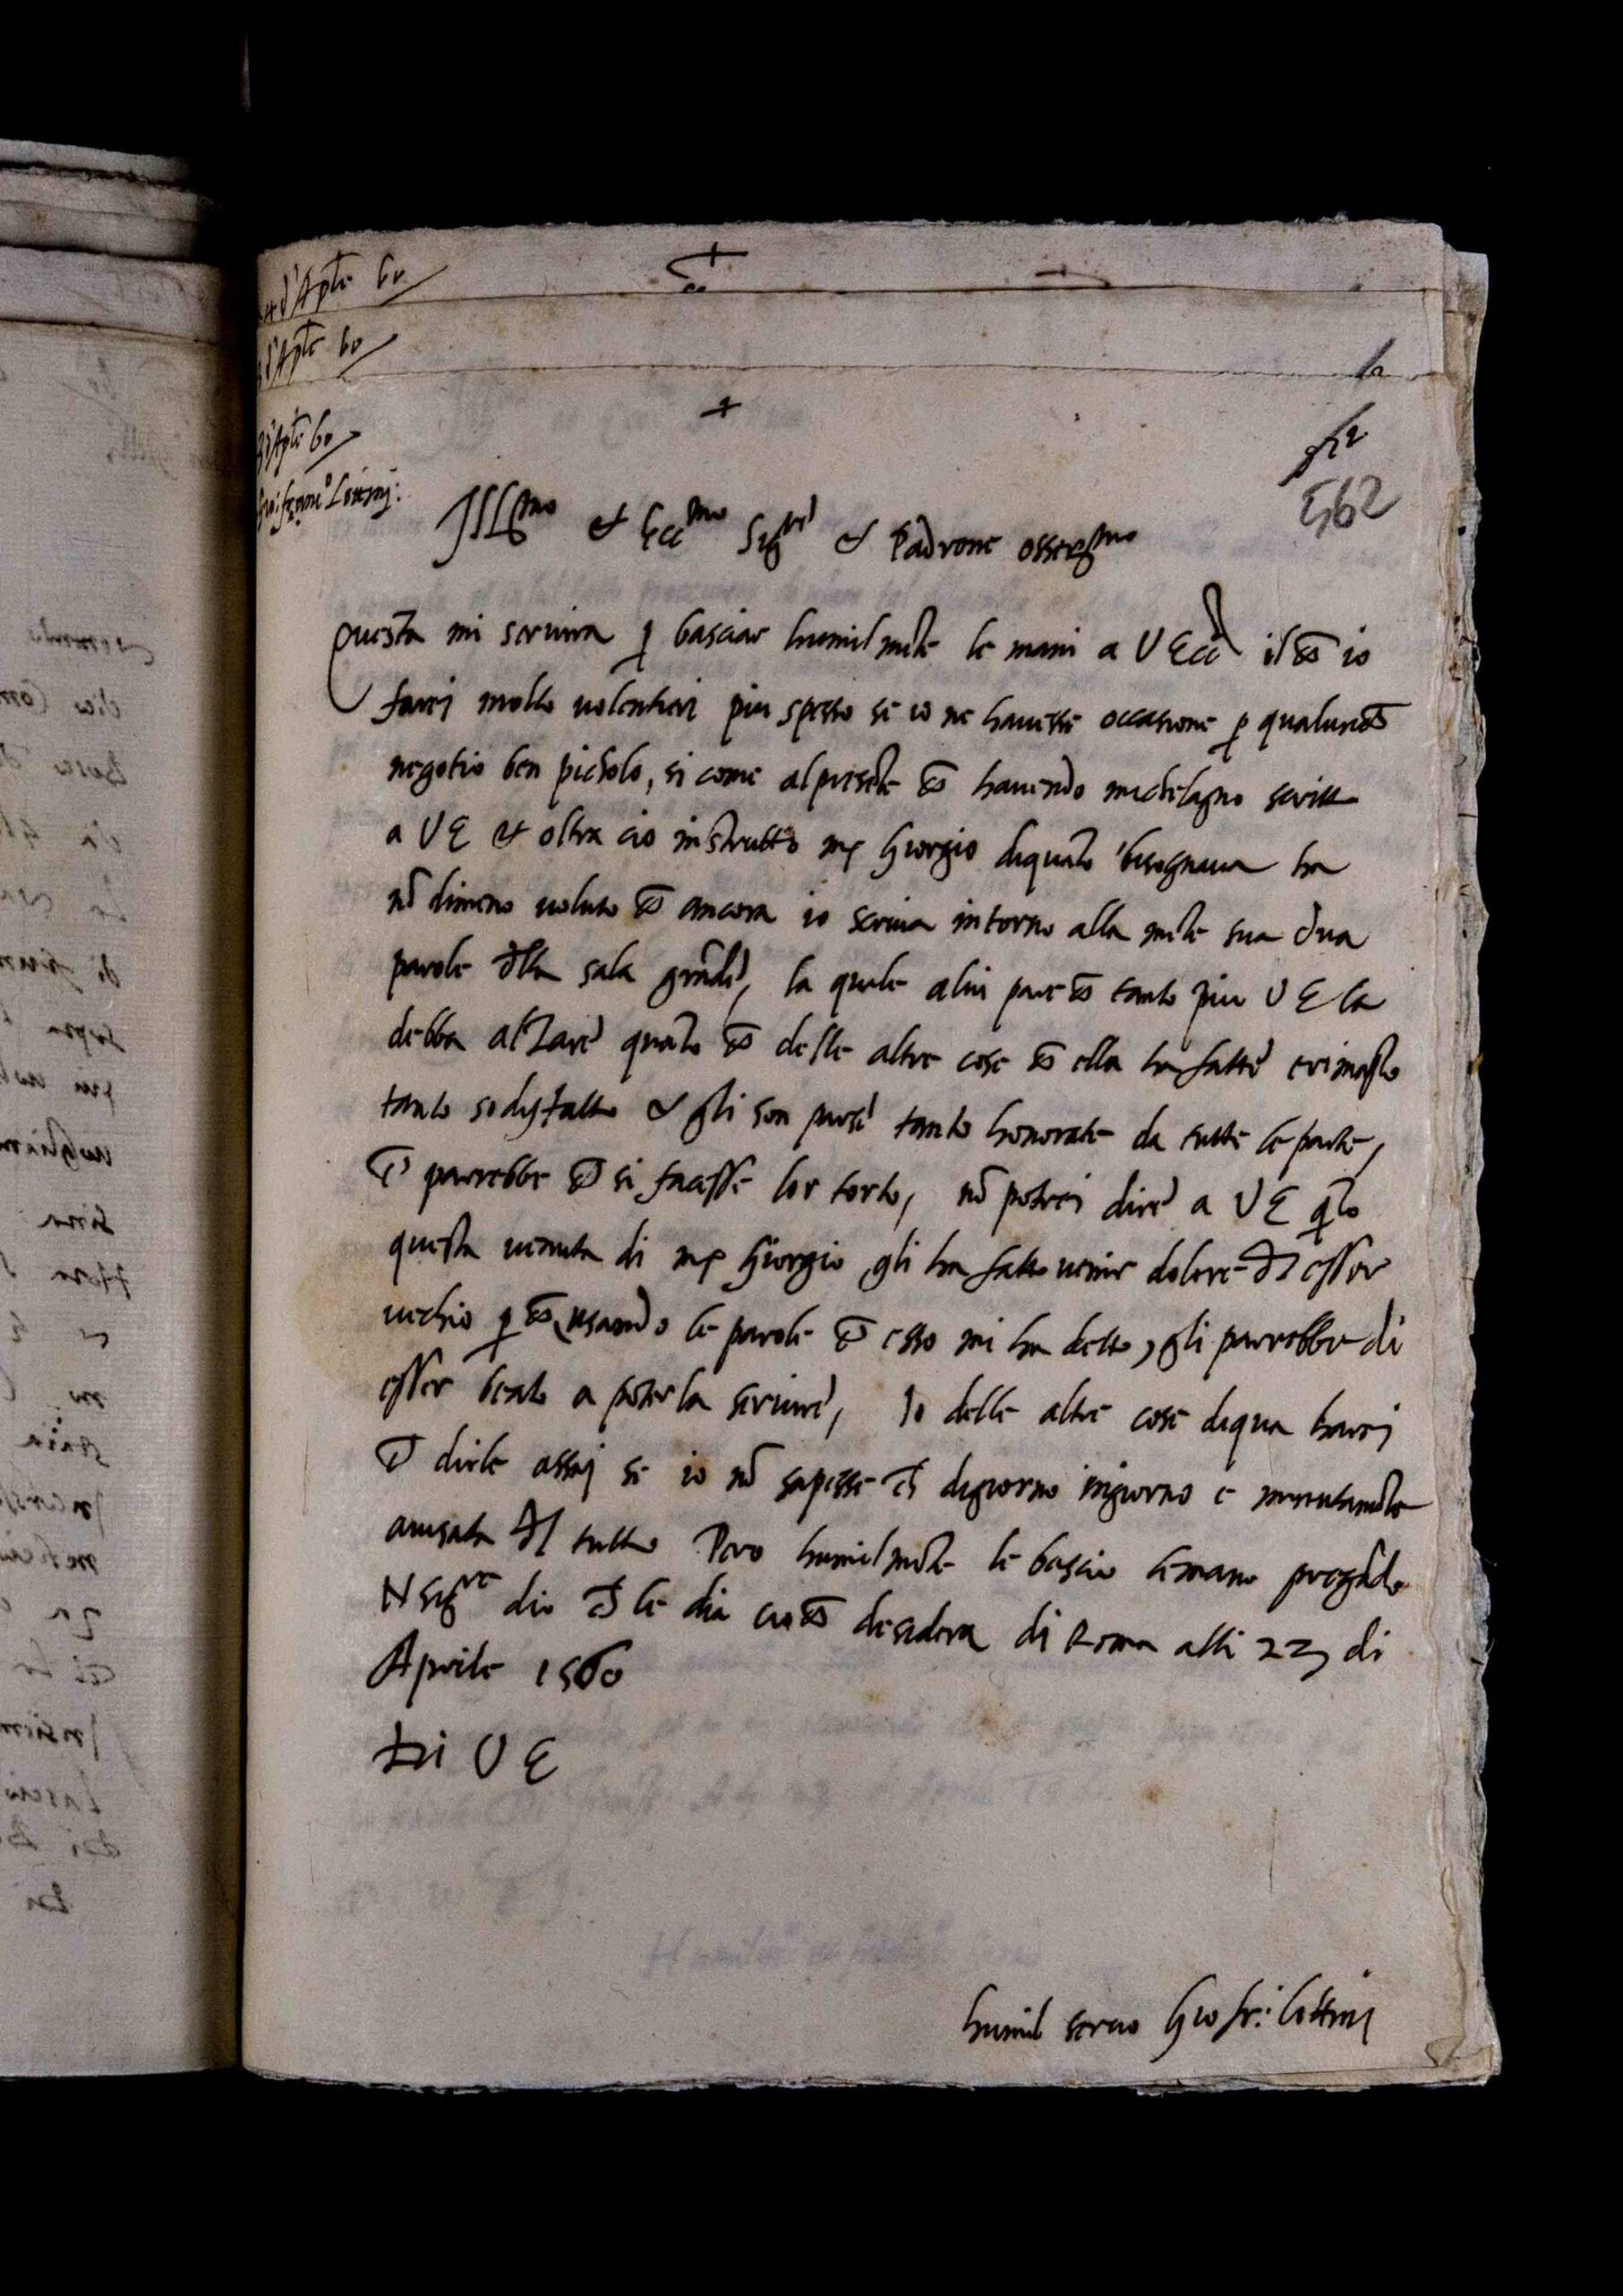 d'Aple 60
d'Aple 60
+
d'Aple 60
Gio: franc.o Lottinj:
562
Ill.mo et Ecc.mo Sig.re et Padrone osser.mo
Questa mi servira p basciar humilmte le mani a V Ecc.a il che io
farei molto volentieri piu spesso se io ne havesse occasione p qualunche
negotio ben picholo, si come al presete che havendo michelagno scritto
a V E et oltra cio instrutto m Giorgio diquato bisognava ha
nō dimeno voluto che ancora io scriva intorno alla mēte sua dua
parole dlla sala grāde, la quale alui pare che tanto piu V E la
debba alzare quāto che delle altre cose che ella ha fatte e rimasto
tanto sodisfatto et gli son parse tanto honorate da tutte le parte,
che parrebbe che si facesse lor torto, nō potrei dire a V E q̄to
questa venuta di m Giorgio gli ha fatto venir dolore d esser
vechio p che usando le parole che esso mi ha detto, gli parrebbe di
esser beato a poterla servire, Io delle altre cose diqua harei
che dirle assaj se io nō sapesse che digiorno ingiorno e minutamēte
avisata dl tutto Pero humilmēte le bascio le mane pregādo
N Sig.re dio che le dia cio che desidera di Roma alli 23 di
Aprile 1560
Di V E
humil servo Gio fr: lottini